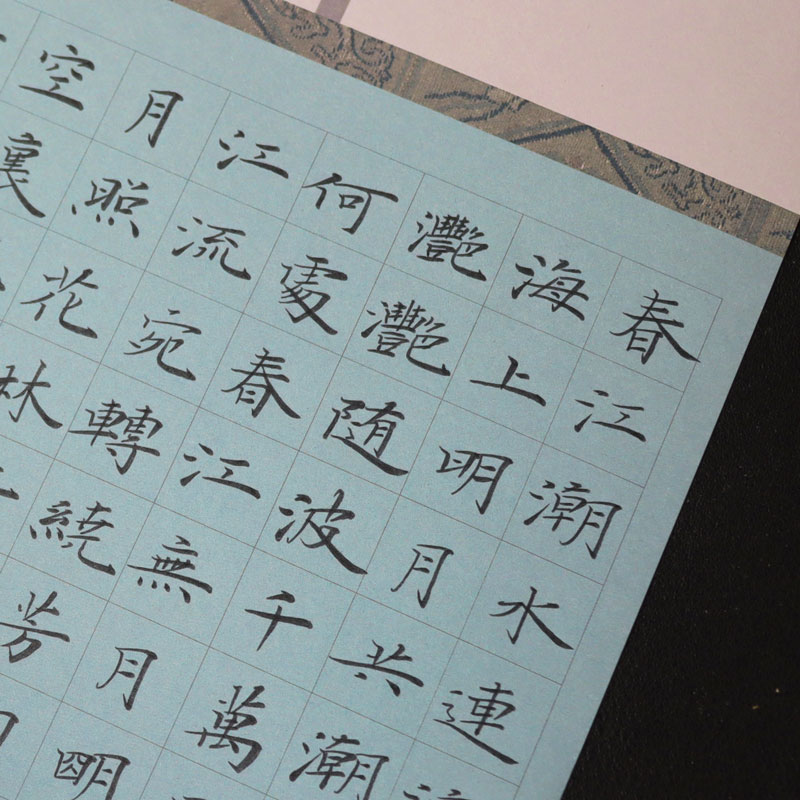 春江潮水連
海上明月共潮
灩灩随波千萬
何處春江無月明
江流宛轉繞芳
月照花林
空裏